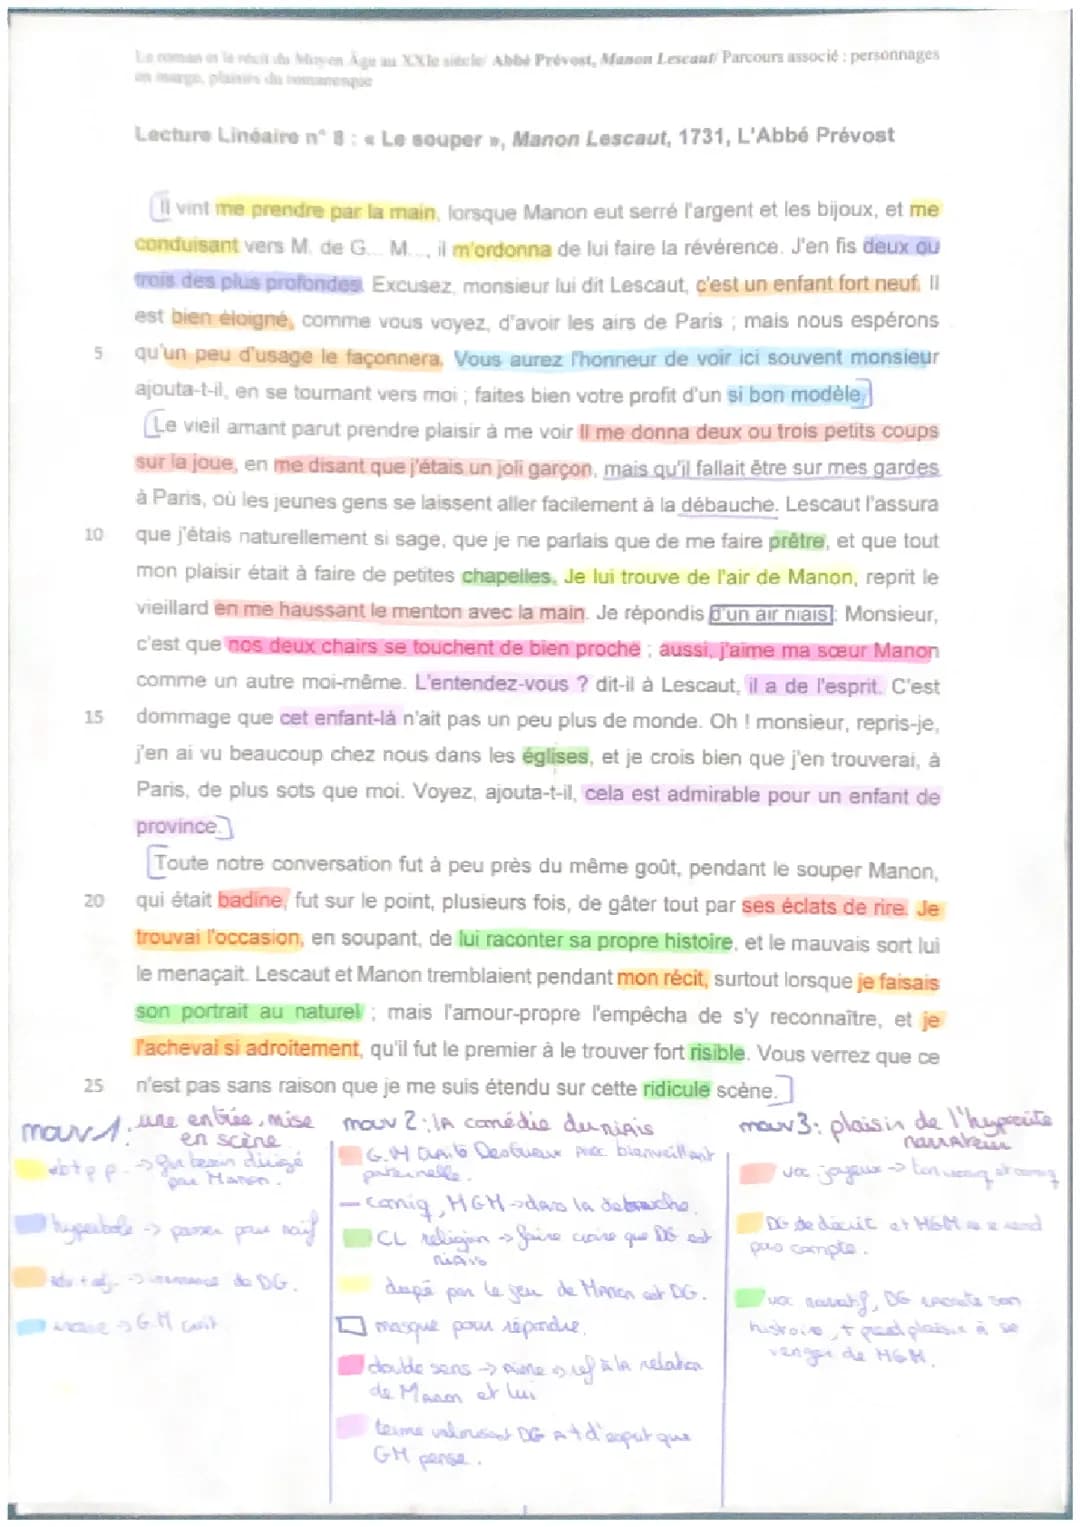 Le roman et le récit du Moyen Âge au XXIe siècle/ Abbé Prévost, Manon Lescaut/ Parcours associé : personnages
en marge, plaisirs du romanesque
Lecture Linéaire n° 8 : « Le souper », Manon Lescaut, 1731, L'Abbé Prévost
Il vint me prendre par la main, lorsque Manon eut serré l'argent et les bijoux, et me
conduisant vers M. de G... M..., il m'ordonna de lui faire la révérence. J'en fis deux ou
trois des plus profondes. Excusez, monsieur lui dit Lescaut, c'est un enfant fort neuf. Il
est bien éloigné, comme vous voyez, d'avoir les airs de Paris ; mais nous espérons
5 qu'un peu d'usage le façonnera. Vous aurez l'honneur de voir ici souvent monsieur
ajouta-t-il, en se tournant vers moi ; faites bien votre profit d'un si bon modèle.
Le vieil amant parut prendre plaisir à me voir Il me donna deux ou trois petits coups
sur la joue, en me disant que j'étais un joli garçon, mais qu'il fallait être sur mes gardes
à Paris, où les jeunes gens se laissent aller facilement à la débauche. Lescaut l'assura
10 que j'étais naturellement si sage, que je ne parlais que de me faire prêtre, et que tout
mon plaisir était à faire de petites chapelles. Je lui trouve de l'air de Manon, reprit le
vieillard en me haussant le menton avec la main. Je répondis d'un air niais : Monsieur,
c'est que nos deux chairs se touchent de bien proche ; aussi, j'aime ma sœur Manon
comme un autre moi-même. L'entendez-vous ? dit-il à Lescaut, il a de l'esprit. C'est
15 dommage que cet enfant-là n'ait pas un peu plus de monde. Oh ! monsieur, repris-je,
j'en ai vu beaucoup chez nous dans les églises, et je crois bien que j'en trouverai, à
Paris, de plus sots que moi. Voyez, ajouta-t-il, cela est admirable pour un enfant de
province.
Toute notre conversation fut à peu près du même goût, pendant le souper Manon,
20 qui était badine, fut sur le point, plusieurs fois, de gâter tout par ses éclats de rire. Je
trouvai l'occasion, en soupant, de lui raconter sa propre histoire, et le mauvais sort lui
le menaçait. Lescaut et Manon tremblaient pendant mon récit, surtout lorsque je faisais
son portrait au naturel ; mais l'amour-propre l'empêcha de s'y reconnaître, et je
l'achevai si adroitement, qu'il fut le premier à le trouver fort risible. Vous verrez que ce
25 n'est pas sans raison que je me suis étendu sur cette ridicule scène.
mouv 1: une entrée, mise
en scène
-> dirigé
par Manon.
hyperbole -> passer pour naïf
adv + adj. -> DG.
-> G.M croit
mouv 2: la comédie du niais
G.M traite Desgrieux avec bienveillant
paternelle.
- comiq, MGM -> dans la débauche.
CL religion -> faire croire que DG est
niais
dupé par le jeu de Manon et DG.
masque pour répondre.
double sens -> aime réf à la relation
de Manon et lui
terme valorisant DG a + d'esprit que
GM pense.
mouv 3: plaisir de l'hypocrite
narrateur
voc joyeux -> et comiq
DG décrit et MGM se rend
pas compte.
voc narratif, DG raconte son
histoire, + plaisir à se
venger de MGM.